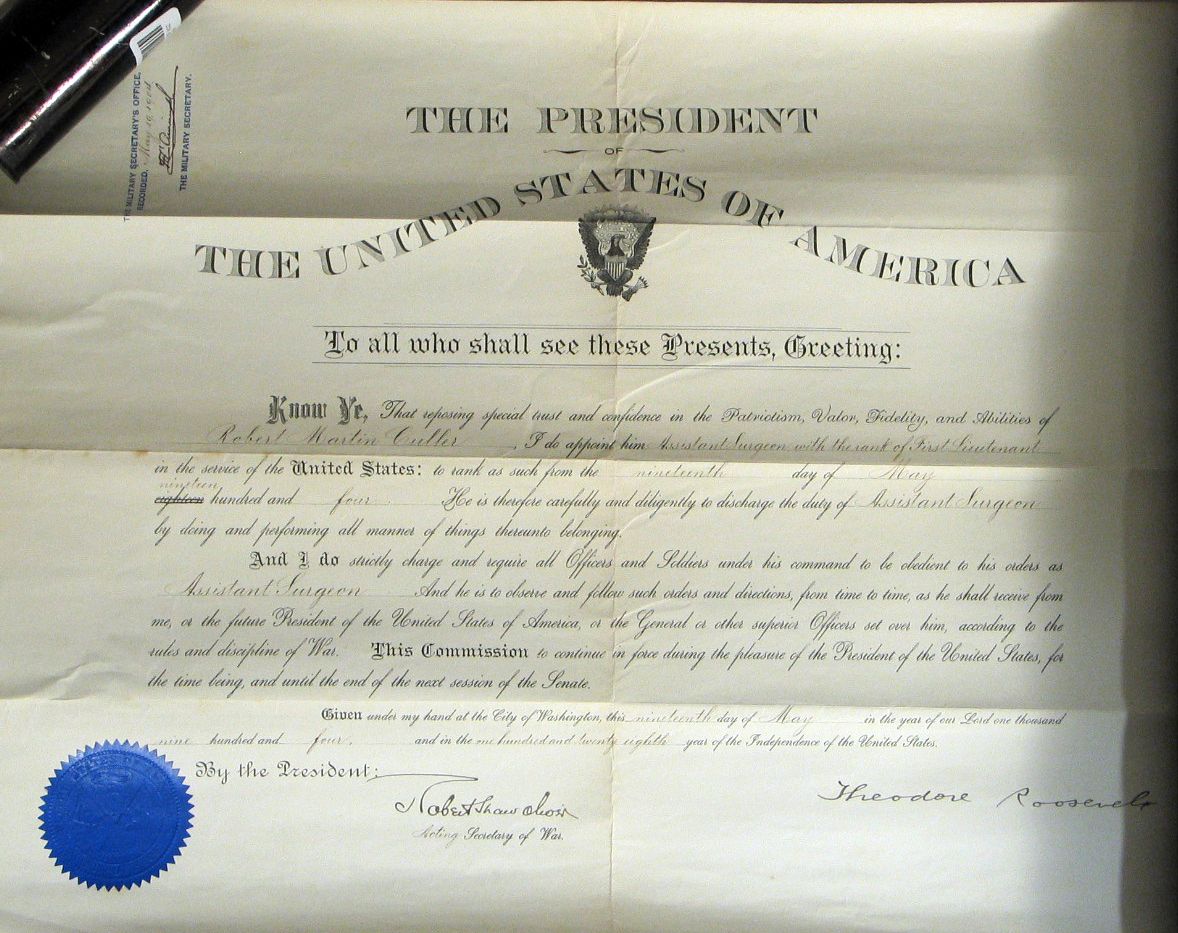 THE MILITARY SECRETARY'S OFFICE,
RECORDED, May 19 1904
THE MILITARY SECRETARY.
THE PRESIDENT
OF
THE UNITED STATES OF AMERICA
To all who shall see these Presents, Greeting:
Know Ye, That reposing special trust and confidence in the Patriotism, Valor, Fidelity, and Abilities of
Robert Martin Culler, I do appoint him Assistant Surgeon with the rank of First Lieutenant
in the service of the United States: to rank as such from the nineteenth day of May
nineteen
eighteen hundred and four. He is therefore carefully and diligently to discharge the duty of Assistant Surgeon
by doing and performing all manner of things thereunto belonging.
And I do strictly charge and require all Officers and Soldiers under his command to be obedient to his orders as
Assistant Surgeon And he is to observe and follow such orders and directions, from time to time, as he shall receive from
me, or the future President of the United States of America, or the General or other superior Officers set over him, according to the
rules and discipline of War. This Commission to continue in force during the pleasure of the President of the United States, for
the time being, and until the end of the next session of the Senate.
Given under my hand at the City of Washington, this nineteenth day of May in the year of our Lord one thousand
nine hundred and four, and in the one hundred and twenty eighth year of the Independence of the United States.
By the President:
Robert Shaw Oliver
Acting Secretary of War.
Theodore Roosevelt